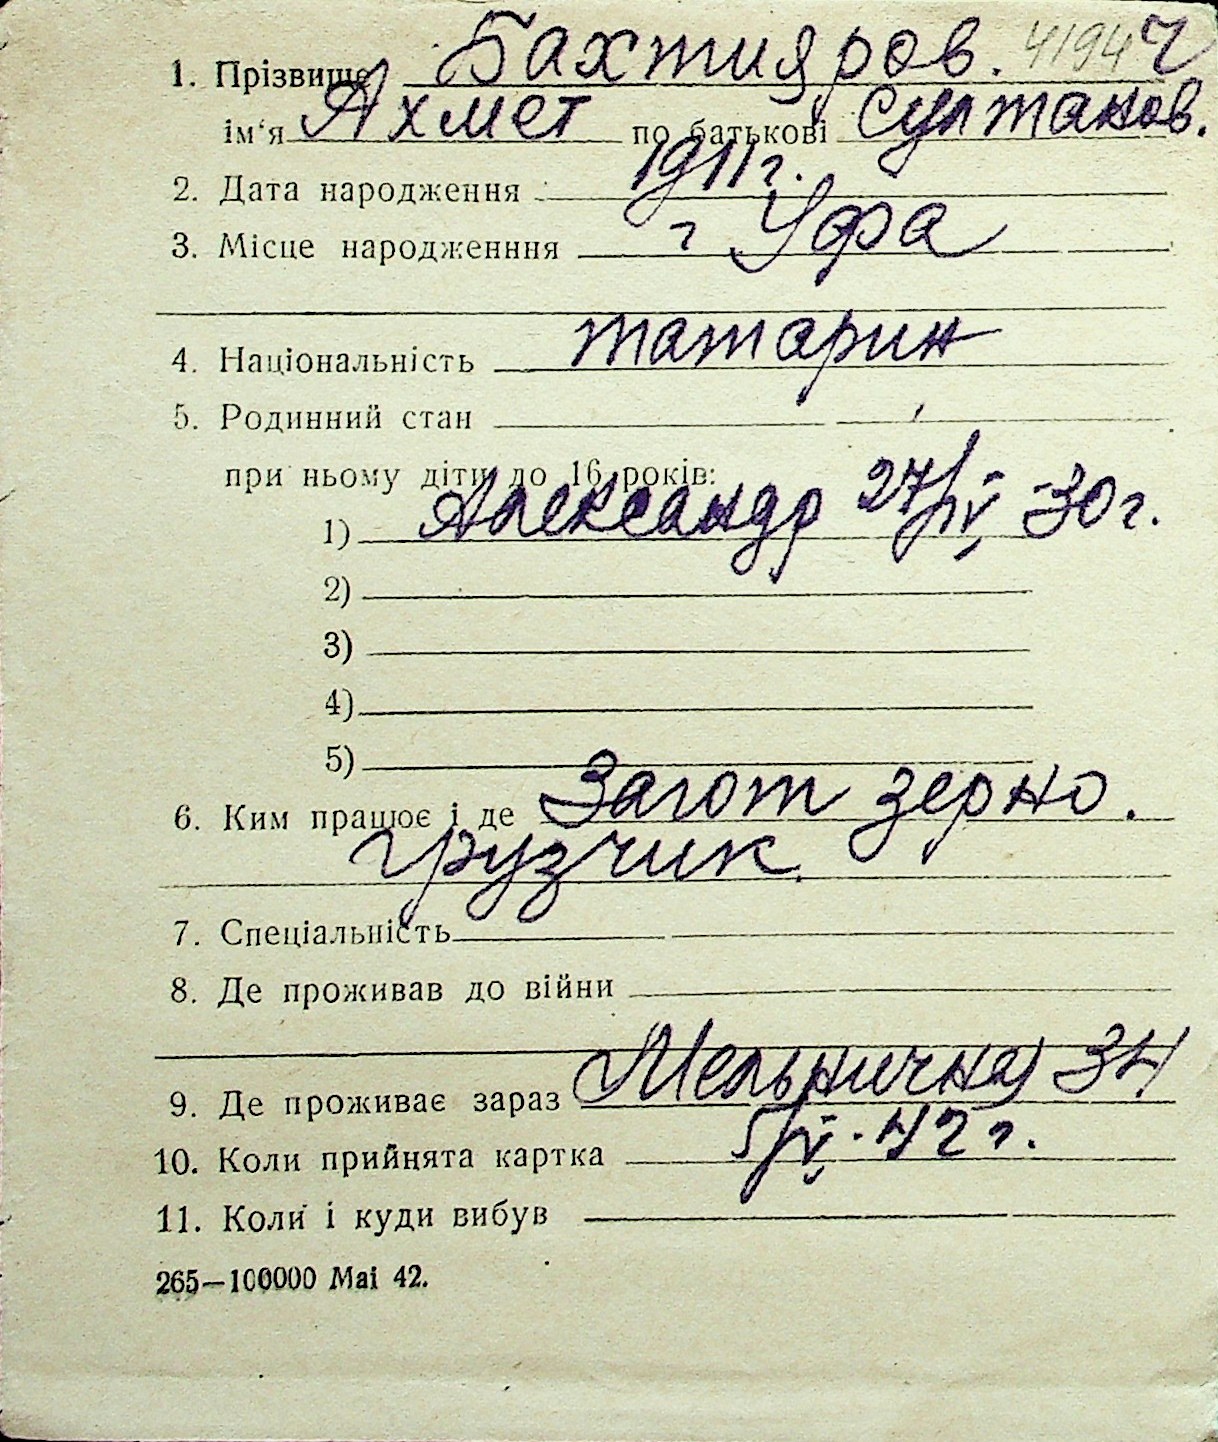 1. Прізвище Бахтияров. 41944
ім'я Ахмет по батькові Султанов.
2. Дата народження 1911 г.
3. Місце народженння г Уфа
4. Національність татарин
5. Родинний стан
при ньому діти до 16 років:
1) Александр 27/IV-30 г.
2)
3)
4)
5)
6. Ким працює і де Загот зерно.
грузчик.
7. Спеціальність
8. Де проживав до війни
9. Де проживає зараз Мельничная 34
10. Коли прийнята картка 5/IV-42 г.
11. Коли і куди вибув
265—100000 Mai 42.